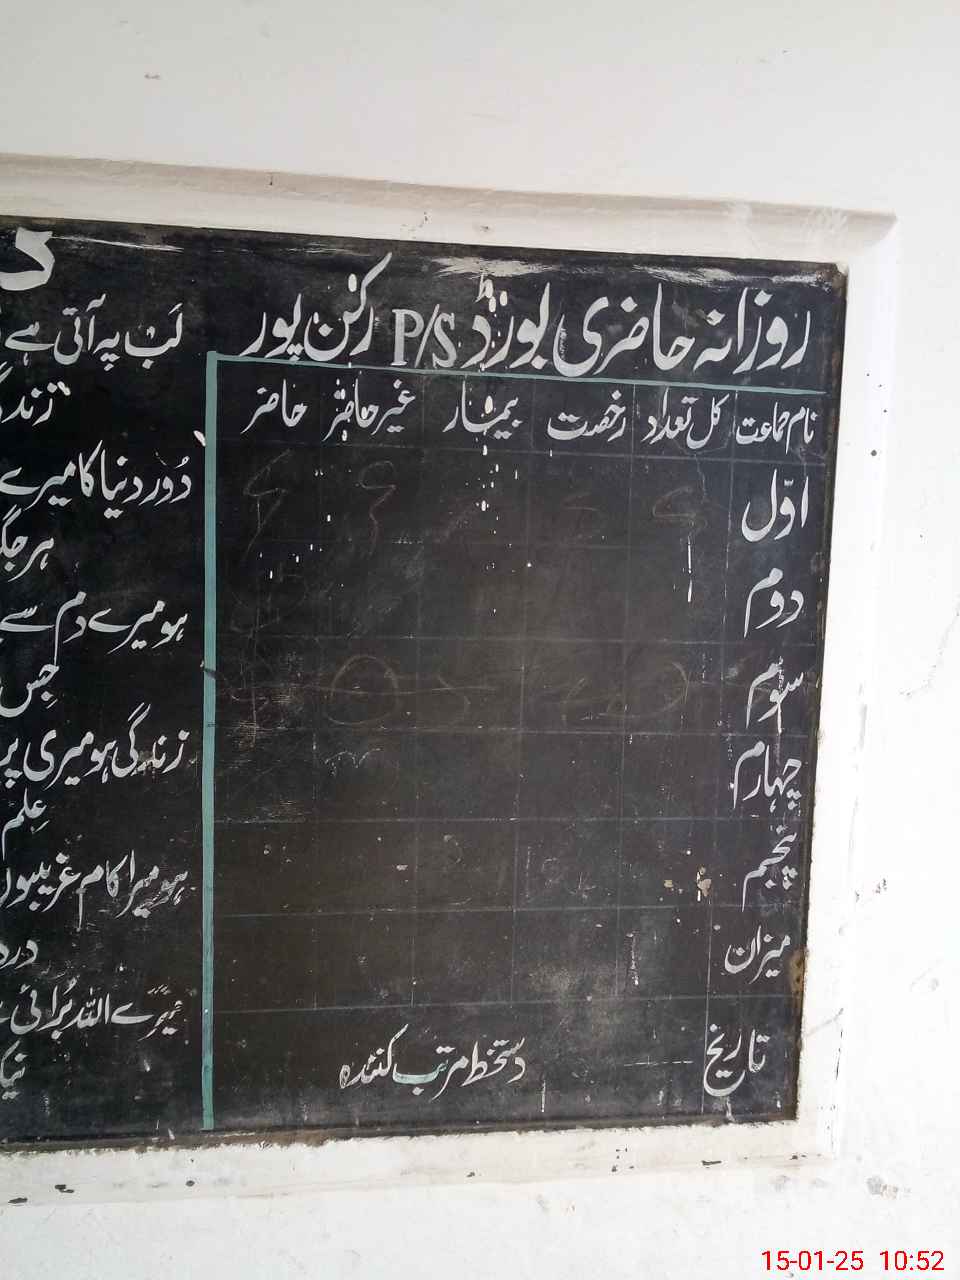 روزانہ حاضری بورڈ P/S رکن پور
نام جماعت کل تعداد رخصت بیمار غیر حاضر حاضر
اوّل
دوم
سوم
چہارم
پنجم
میزان
تاریخ دستخط مرتب کنندہ
لَب پہ آتی ہے
زندگی
دُور دنیا کا میرے
ہر جگہ
ہو میرے دم سے
جس
زندگی ہو میری پر
عِلم
ہو میرا کام غریبوں
درد
میرے اللہ بُرائی
15-01-25 10:52